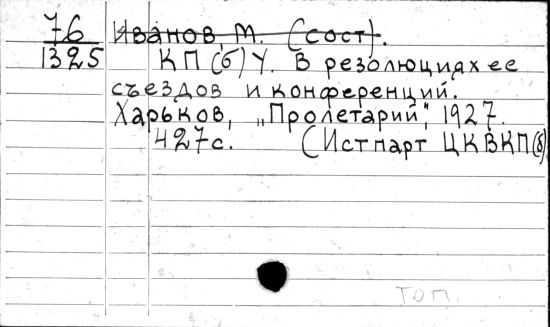 76
1325
Иванов, М. (сост).
КП(б)У. В резолюциях ее
съездов и конференций.
Харьков, „Пролетарий", 1927.
427с. (Истпарт ЦКВКП(б)
топ.